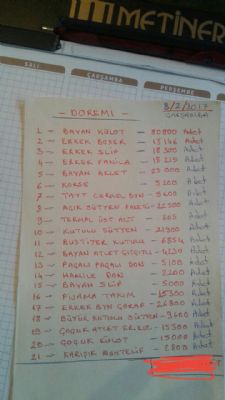 METİNER
SALI
ÇARŞAMBA
PERŞEMBE
- DOREMİ -
8/2/2017
ÇARŞAMBA
1 - BAYAN KÜLOT - 80800 Adet
2 - ERKEK BOXER - 15146 Adet
3 - ERKEK SLİP - 18500 Adet
4 - ERKEK FANİLA - 18219 Adet
5 - BAYAN ATLET - 25000 Adet
6 - KORSE - 5200 Adet
7 - TAYT 5600 Adet
8 - AÇIK SÜTYEN 22500 Adet
9 - TERMAL ÜST ALT - 805 Adet
10 - KUTULU SÜTYEN - 21900 Adet
11 - BÜSTİYER KUTULU - 6854 Adet
12 - BAYAN ATLET - 4230 Adet
13 - PAÇALI DON - 5100 Adet
14 - HAMİLE DON - 2200 Adet
15 - BAYAN SLİP - 5000 Adet
16 - PİJAMA TAKIM - 15300 Adet
17 - ERKEK BYN ÇORAP - 26800 Adet
18 - BÜYÜK KUTULU SÜTYEN - 3600 Adet
19 - ÇOÇUK ATLET - 15300 Adet
20 - ÇOÇUK KÜLOT - 15000 Adet
21 - KARIŞIK 2800 Adet